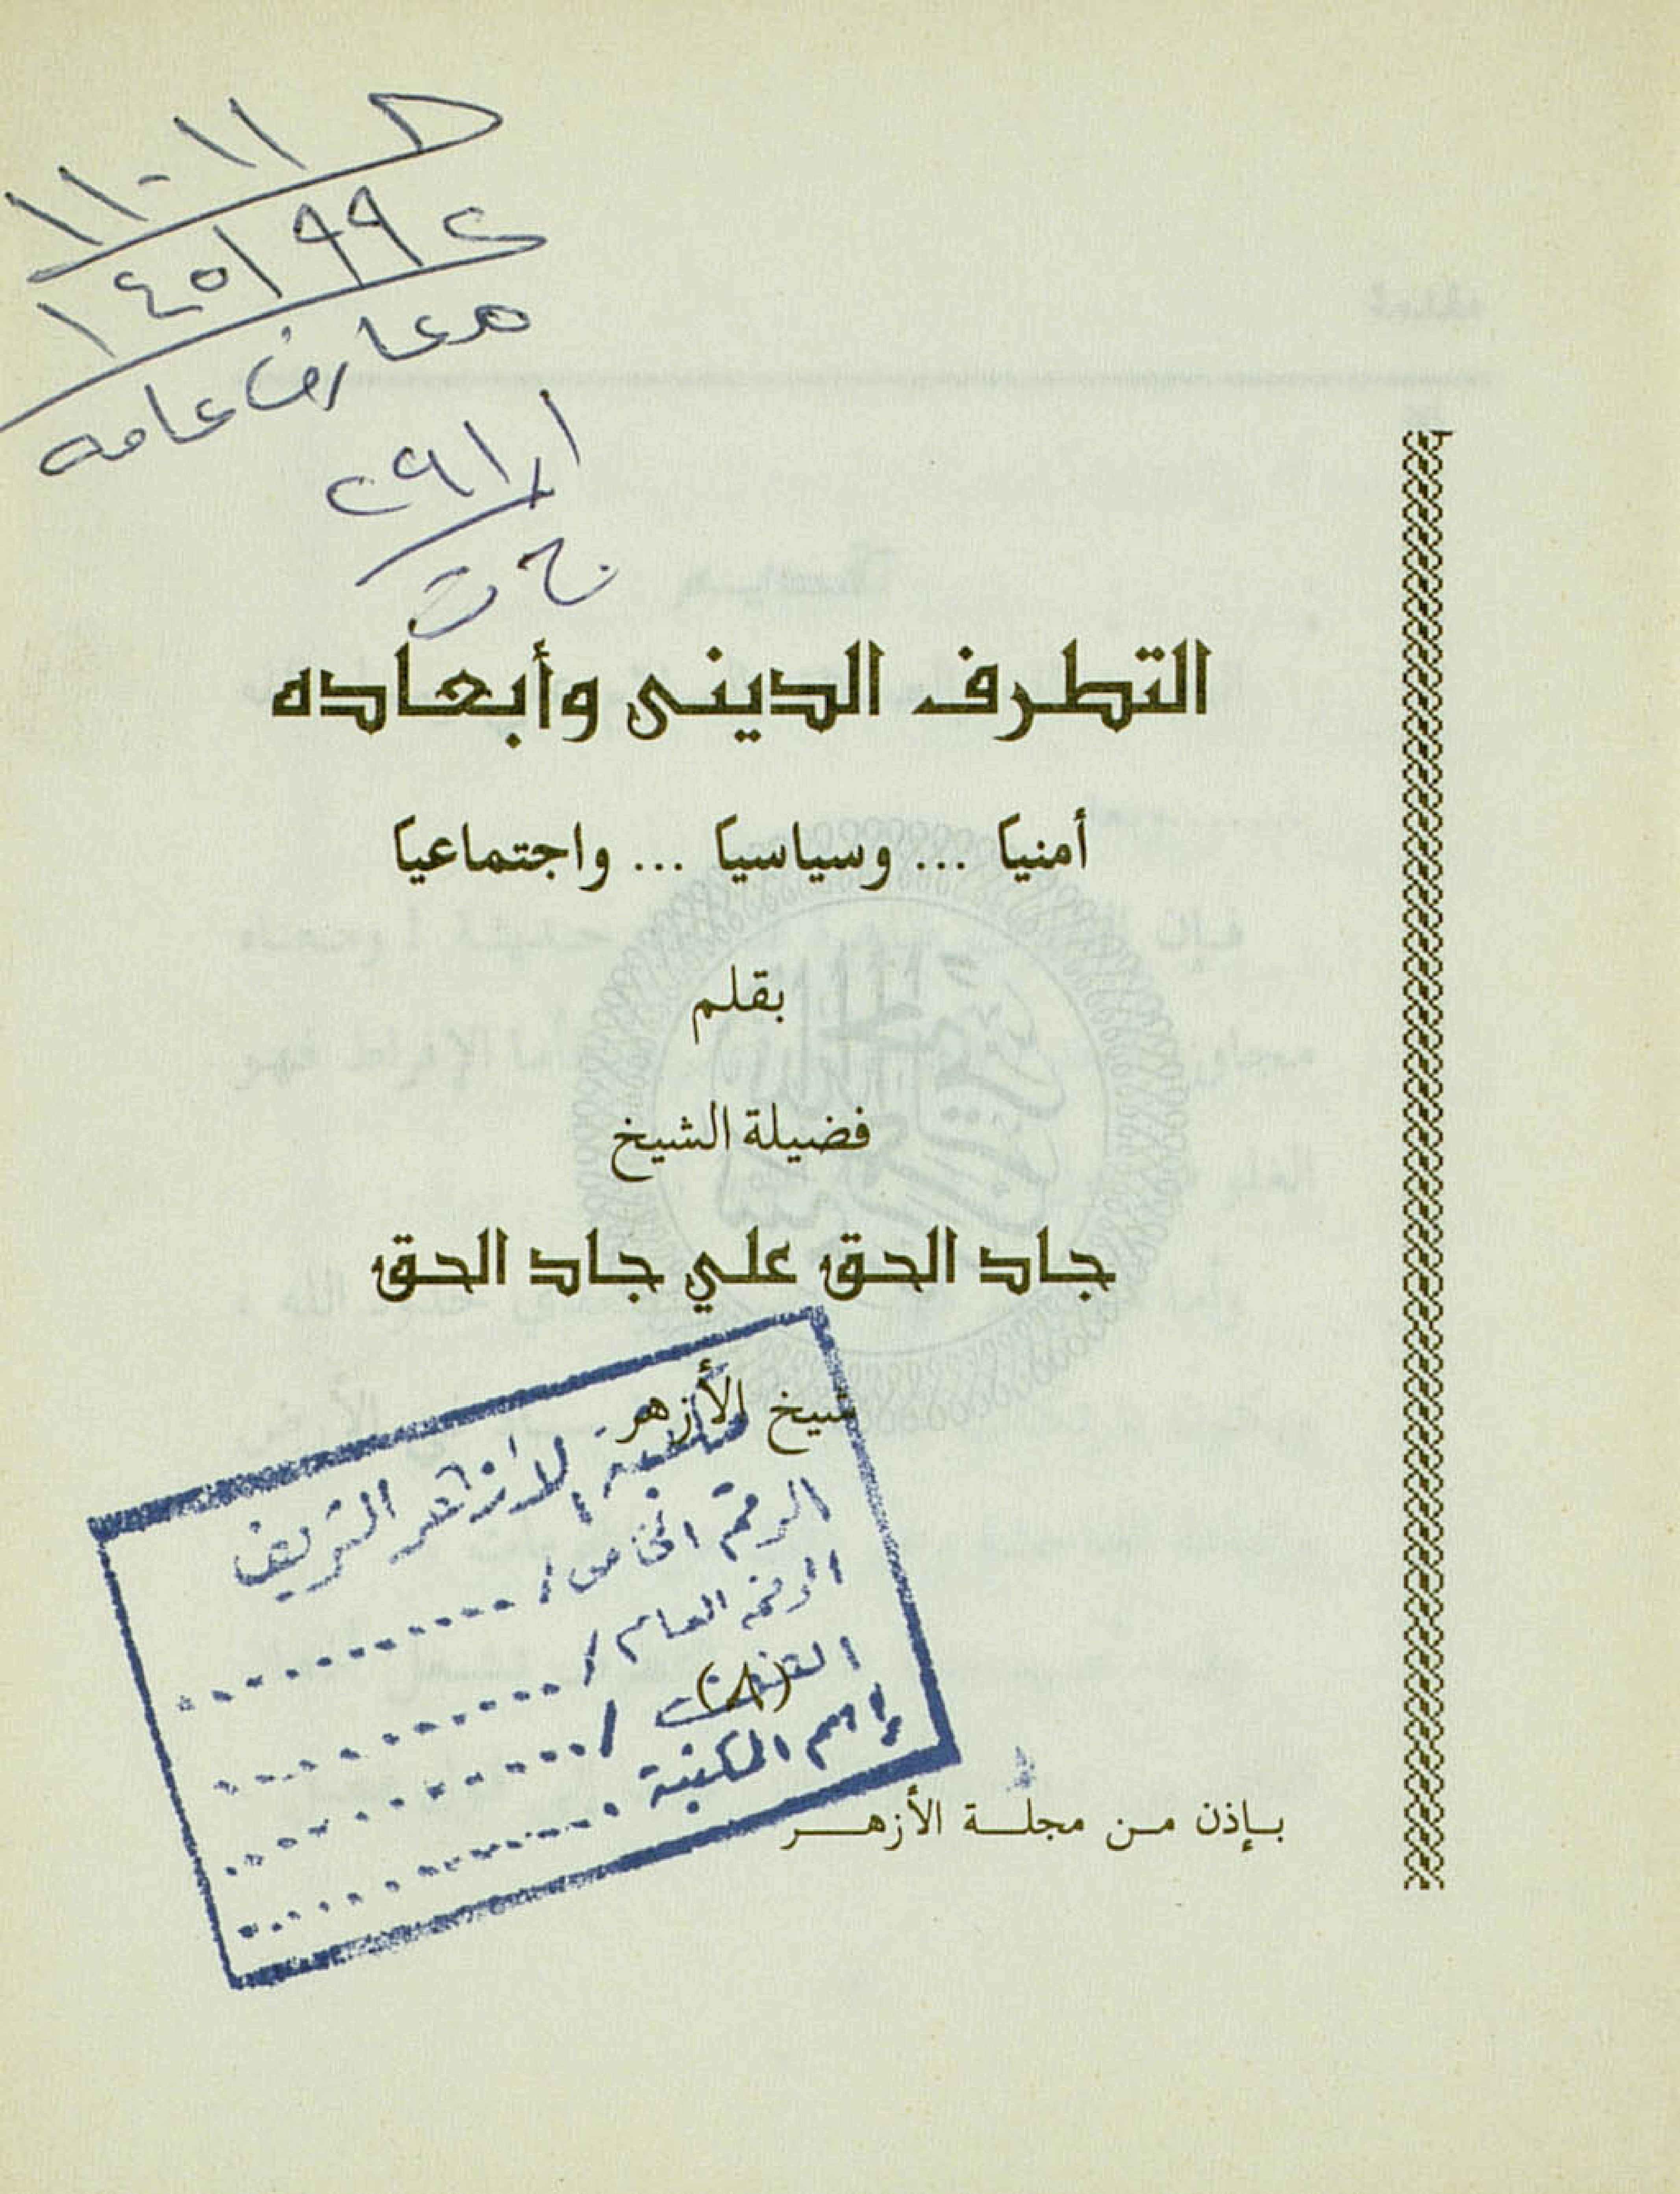 ١١-١١ ح
١٤٥١٩٩ ع
معارف عامه
٢٩١
التطرف الدينى وأبعاده
أمنيا ... وسياسيا ... واجتماعيا
بقلم
فضيلة الشيخ
جاد الحق علي جاد الحق
شيخ الأزهر
مكتبة الأزهر الشريف
الرقم الخاص / ............
الرقم العام / ............
الفن / ............
اسم المكتبة ............
(٨)
بإذن من مجلة الأزهر